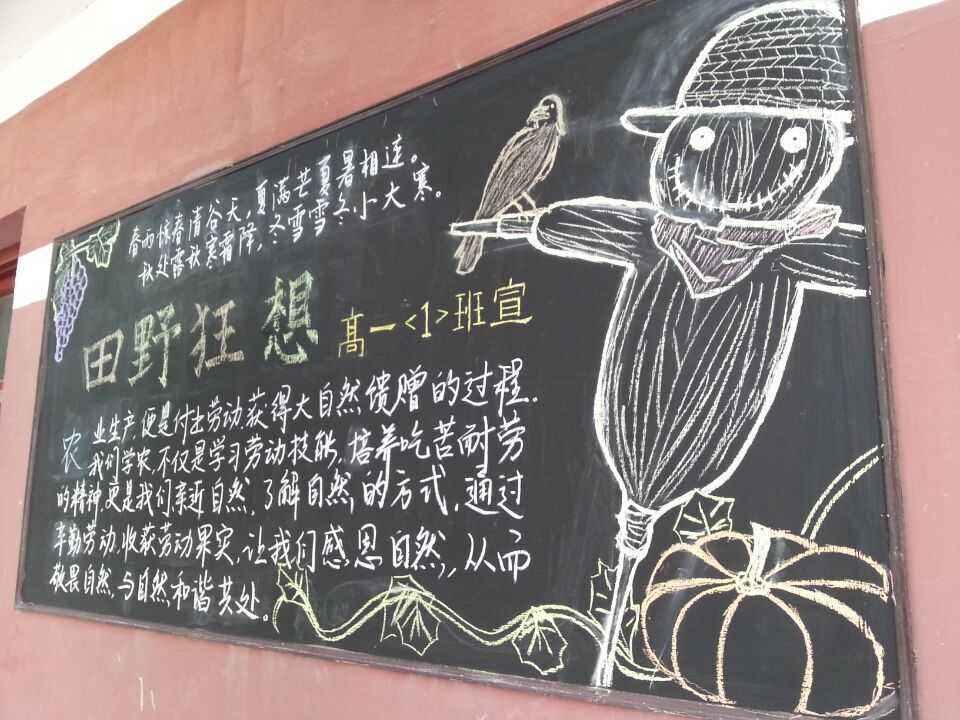 春雨惊春清谷天，夏满芒夏暑相连。
秋处露秋寒霜降，冬雪雪冬小大寒。
田野狂想
高一<1>班宣
农业生产，便是付出劳动，获得大自然馈赠的过程.
我们学农，不仅是学习劳动技能，培养吃苦耐劳
的精神，更是我们亲近自然，了解自然，的方式，通过
辛勤劳动，收获劳动果实，让我们感恩自然，从而
敬畏自然，与自然和谐共处。